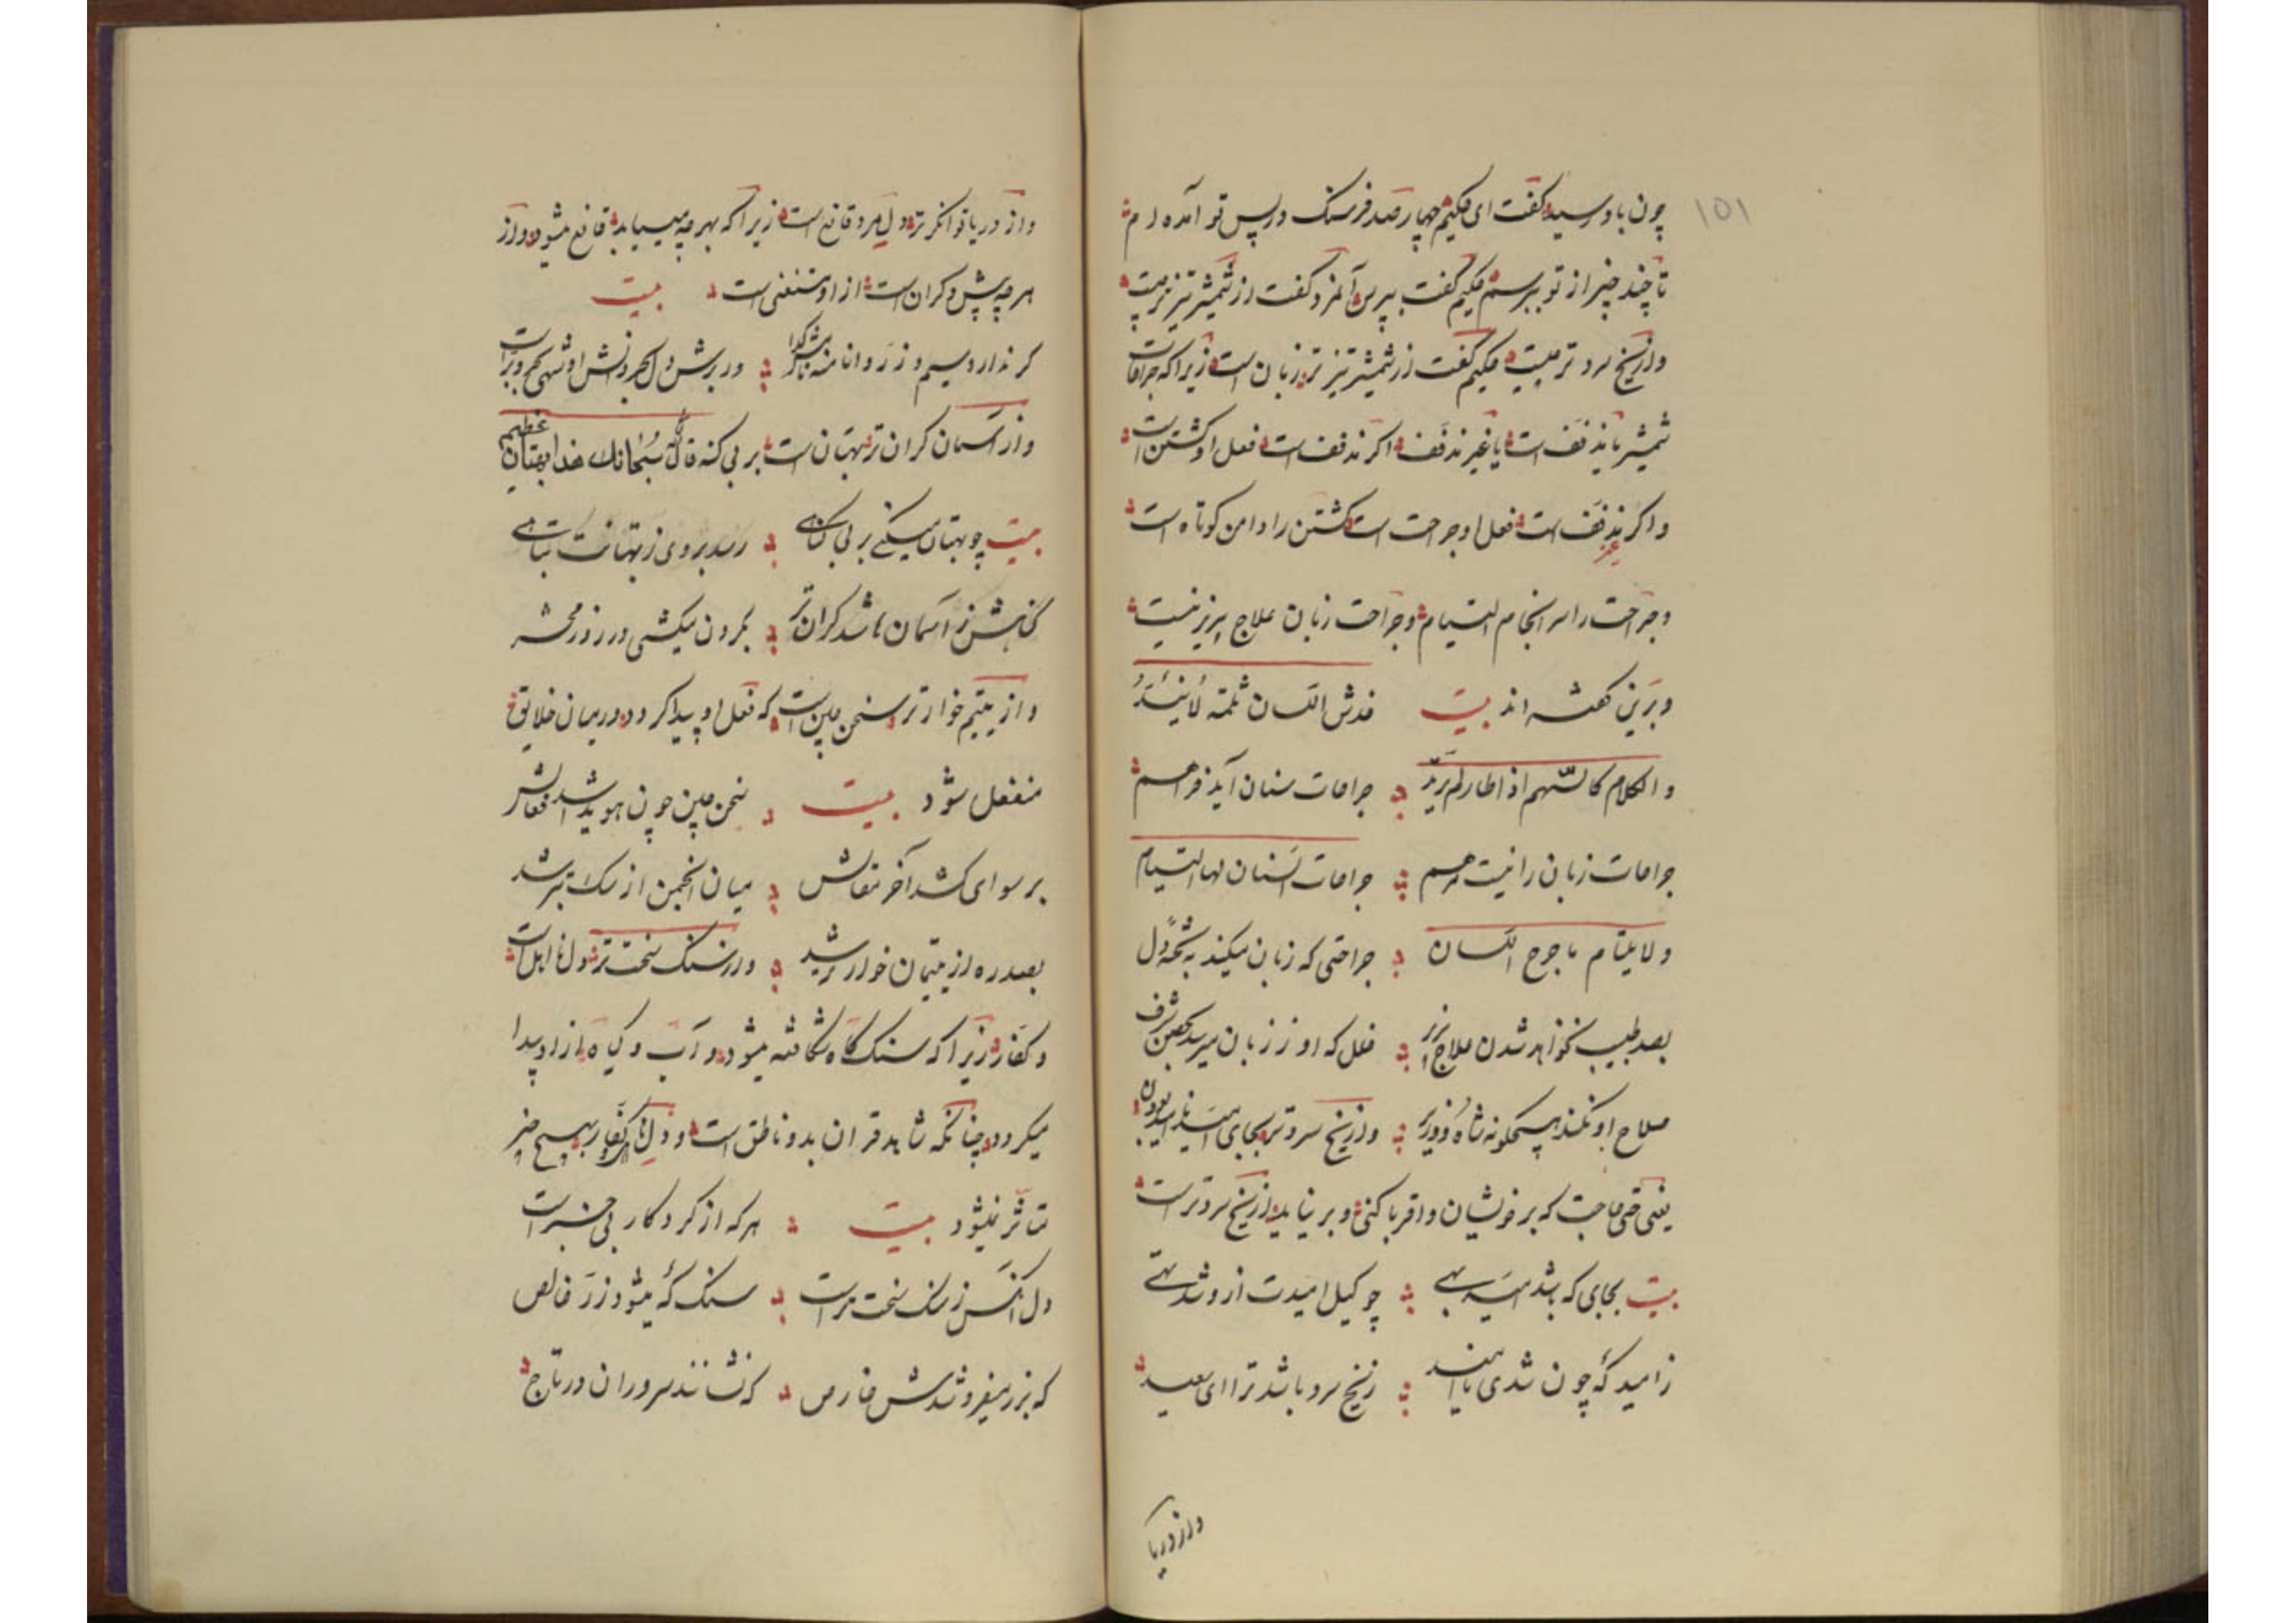 ۱۵۱
چون باو رسید گفت ای حکیم چهار صد فرسنک در پس تو آمده ام
تا چند چیز از تو بپرسم حکیم گفت بپرس آنمرد گفت از شمشیر تیزتر چیست
و از یخ سردتر چیست حکیم گفت از شمشیر تیزتر زبان است زیرا که جراحات
شمشیر یا نذفف است یا غیر نذفف اکر نذفف است فعل او کشتن است
و اکر غیر نذفف است فعل او جراحت است کشتن را دامن کوتاه است
و جراحت را سرانجام التیام و جراحت زبان علاج پریز نیست
و برین گفته اند بیت خدش اللسان ثلمة لا ینسد
والکلام کالسهم اذا طار لم یرد جراحات سنان آید فراهم
جراحات زبان را نیست مرهم جراحات السنان لها التیام
ولا یلتام ما جرح اللسان جراحتی که زبان میکند بشحمه دل
بصد طبیب نخواهد شدن علاج پذیر خلل که از زبان میرسد بحصن شرف
صلاح او نکند هیچکونه شاه و وزیر و از یخ سردتر بجای امید ناامید بودن
یعنی حتی حاجت که بر خویشان و اقربا کنی و بر نیاید از یخ سردتر است
بیت بجای که باشد امید بهی چو کیل امیدت ازو شد تهی
ز امید که چون شدی ناامید ز یخ سرد باشد ترا ای سعید
و از دریا
و از دریا توانکرتر دل مرد قانع است زیرا که بهر چه میباید قانع میشود و از
هرچه پیش دکران است از او مستغنی است بیت
کر ندارد سیم و زر دانا منه نامش کدا در برش دل بحر دانش او شهی بحر و بر است
و از آسمان کران تر بهتان است بر بی کنه قال سبحانک هذا بهتان عظیم
بیت چو بهتان میکنی بر بی کناهی رسد بر وی ز بهتانت تباهی
کناهش ز آسمان باشد کران تر بکردن میکشی در روز محشر
و از یتیم خوارتر سخن چین است که فعل او پیدا کردد و در میان خلایق
منفعل شود بیت سخن چین چون هویدا شد فعالش
برسوای کشد آخر مقالش میان انجمن از سک بتر شد
بصد ره از یتیمان خوارتر شد و از سنک سخت تر دل نا اهل است
و کفار زیرا که سنک کاه شکافته میشود و آب و کیاه از او پیدا
میکردد چنانکه شاهد قران بدو ناطق است و دل کفار بهیچ چیز
متاثر نمیشود بیت هرکه از کردکار بی خبر است
دل آنکس ز سنک سخت تر است سنک که میشود زر خالص
که بزر میفروشدش خارص که نشانند سروران در تاج